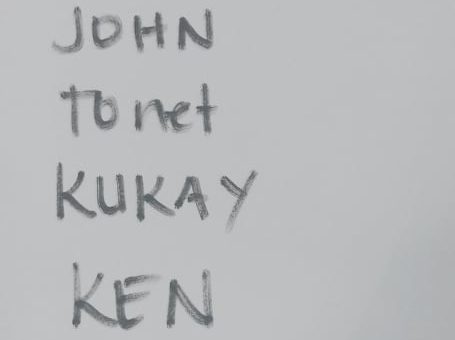 JOHN
Tonet
KUKAY
KEN